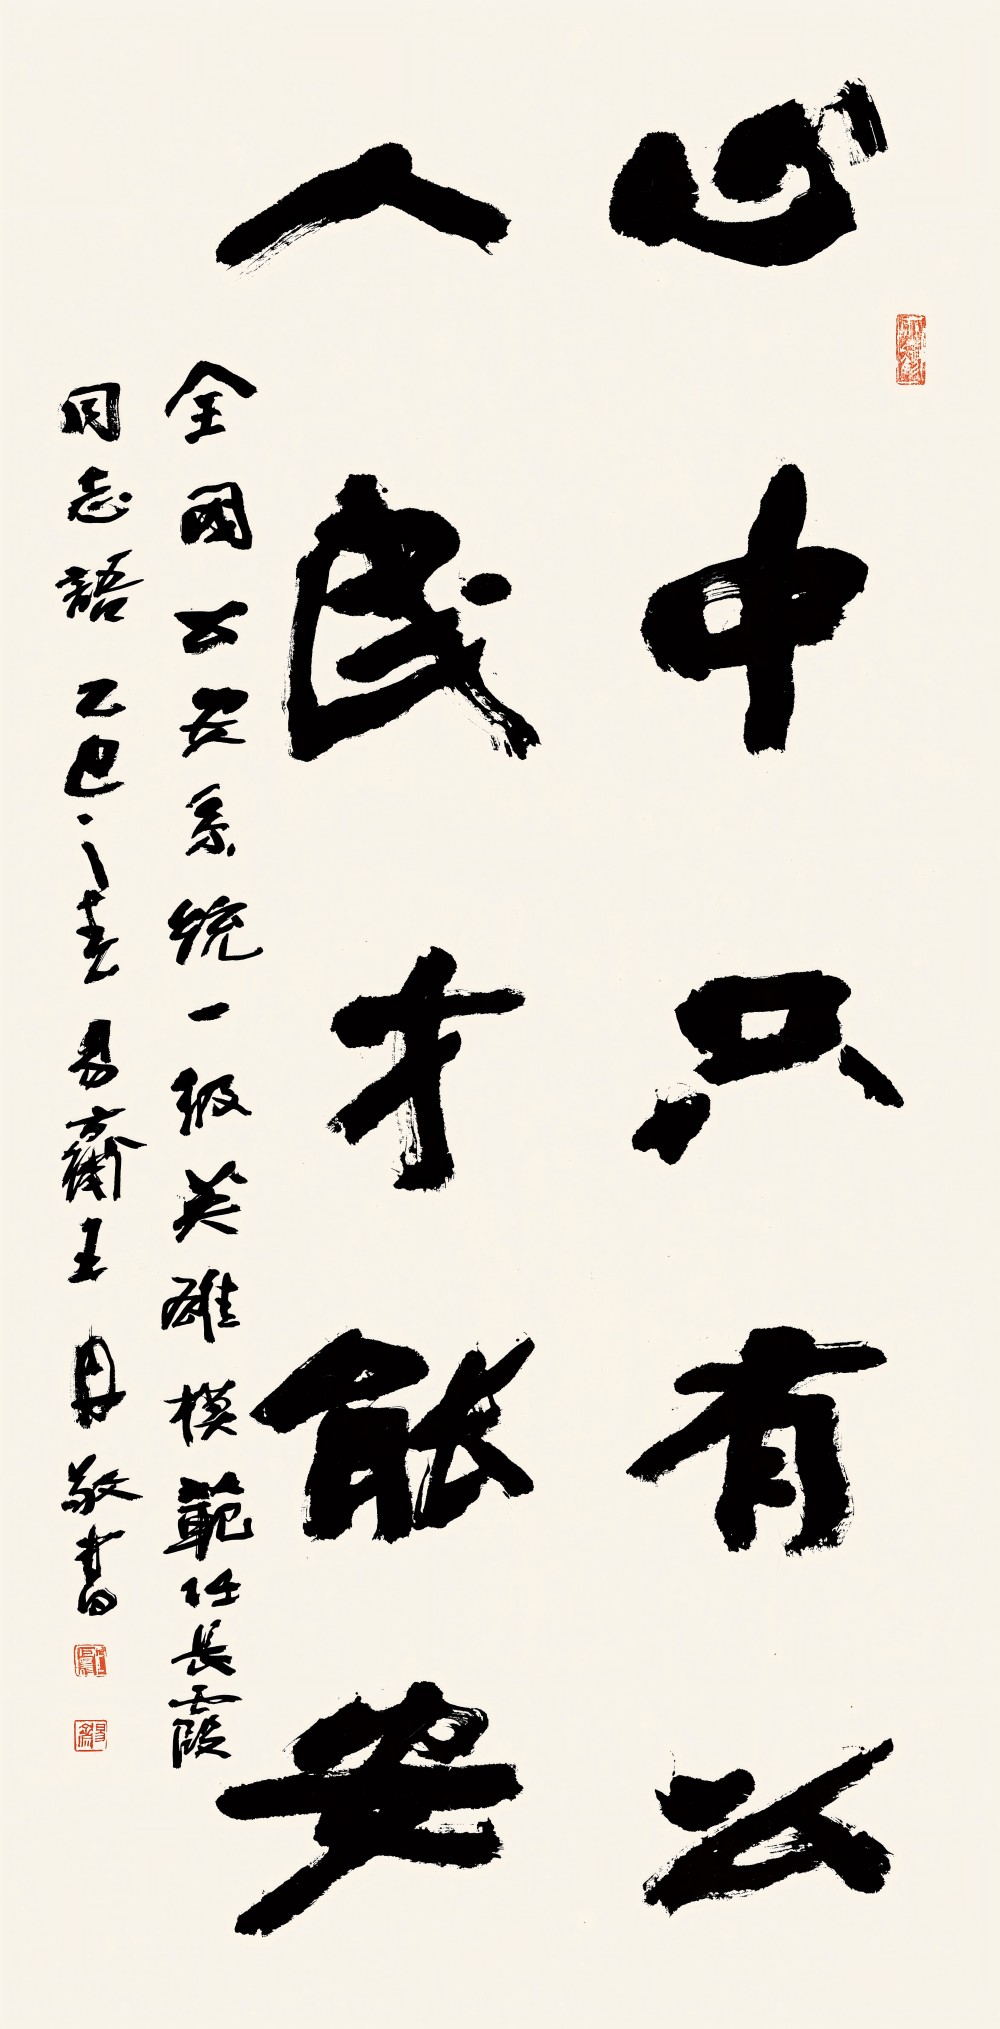 心中只有公
人民才能安
全國公安系統一級英雄模範任長霞
同志語 乙巳之春 易齋王丹敬書